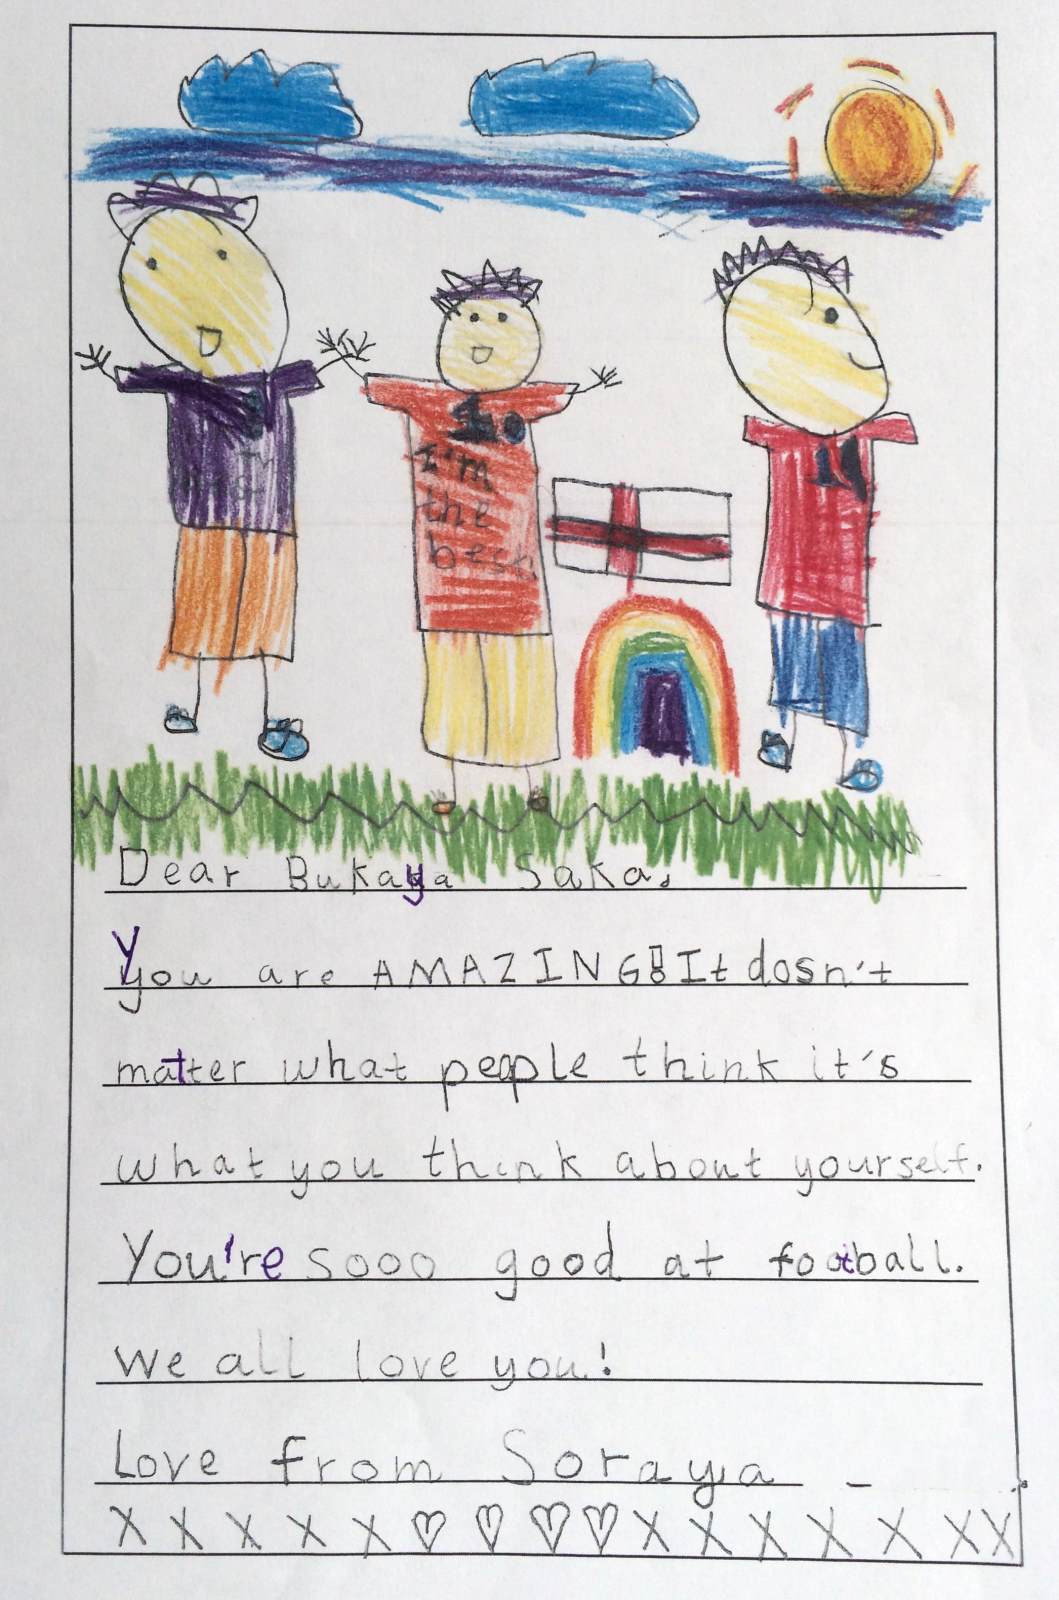 10
I'm
the
best
Dear Bukaya Saka,
You are AMAZING! It dosn't
matter what people think it's
what you think about yourself.
You're sooo good at football.
We all love you!
Love from Soraya
X X X X X ♡ ♡ ♡ ♡ X X X X X X X